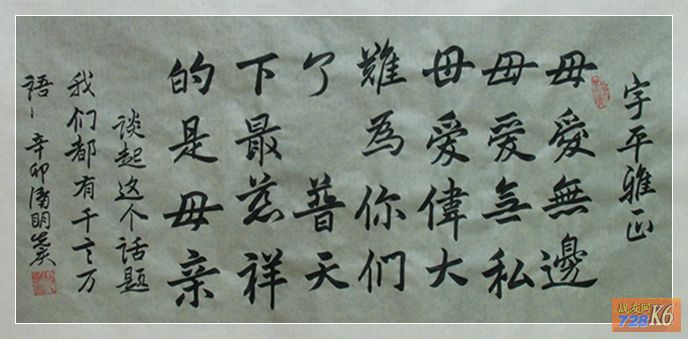 宇平雅正
母愛無邊
母愛無私
母愛偉大
難為你们
了 普天
下最慈祥
的是母亲
谈起这个话题
我们都有千言万
语 辛卯清明
战友网
728K6